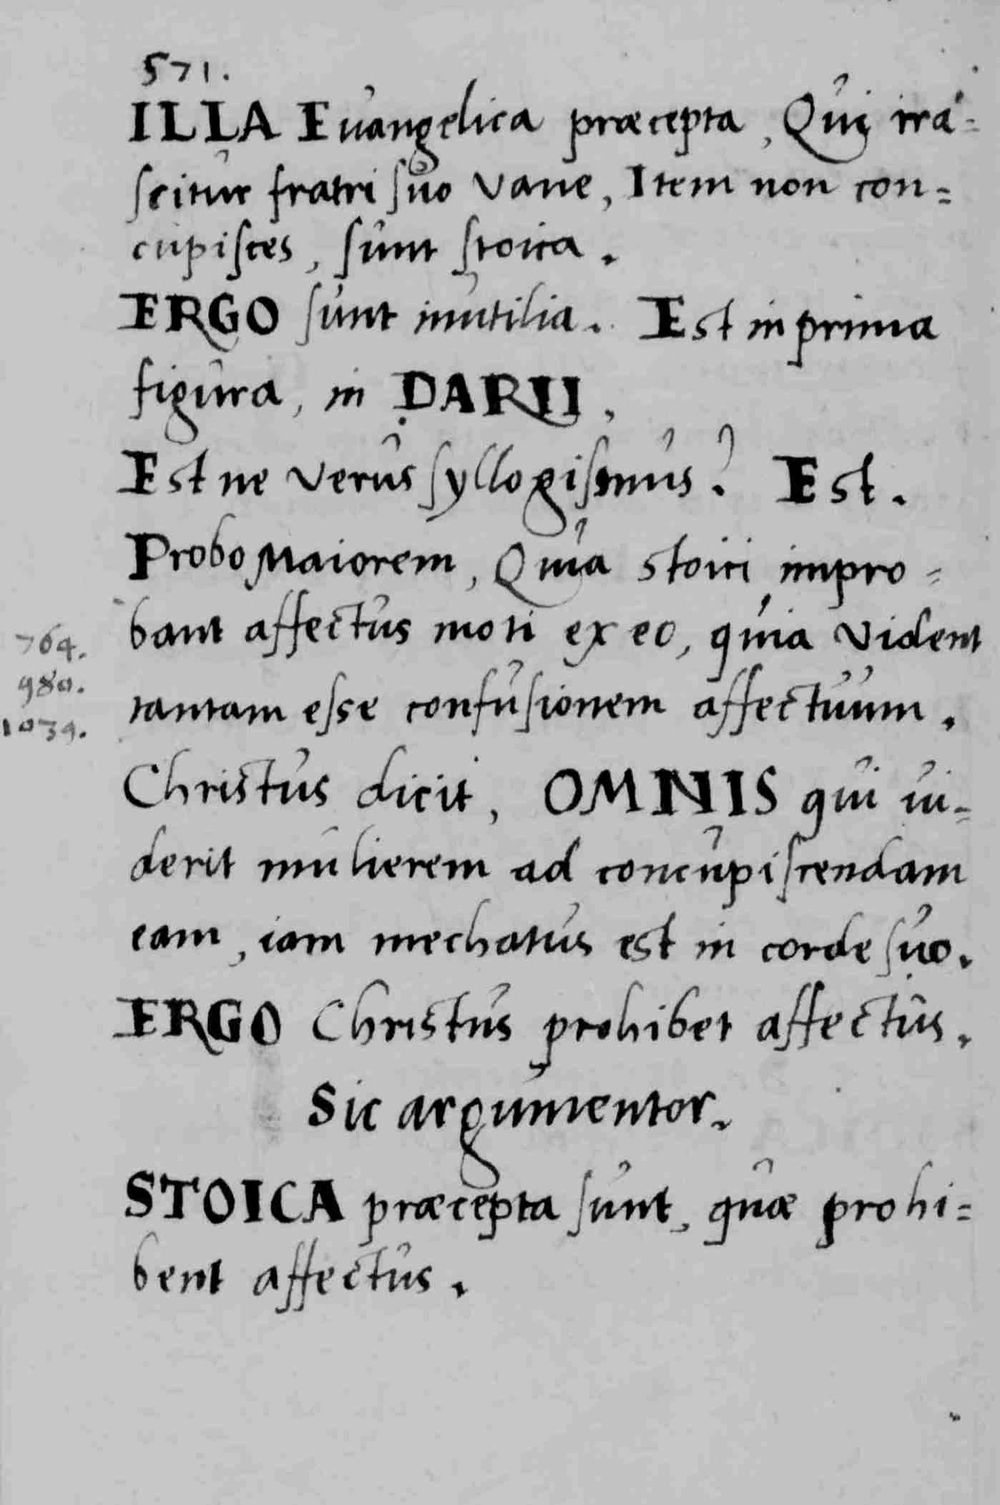 571.
ILLA Euangelica præcepta, Qui ira-
scitur fratri suo vane, Item non con-
cupisces, sunt stoica.
ERGO sunt inutilia. Est in prima
figura, in DARII,
Est ne verus syllogismus? Est.
Probo Maiorem, Quia stoici impro-
bant affectus moti ex eo, quia vident
764.
980.
tantam esse confusionem affectuum.
1039.
Christus dicit, OMNIS qui ui-
derit mulierem ad concupiscendam
eam, iam mechatus est in corde suo.
ERGO Christus prohibet affectus.
Sic argumentor.
STOICA præcepta sunt, quæ prohi-
bent affectus.